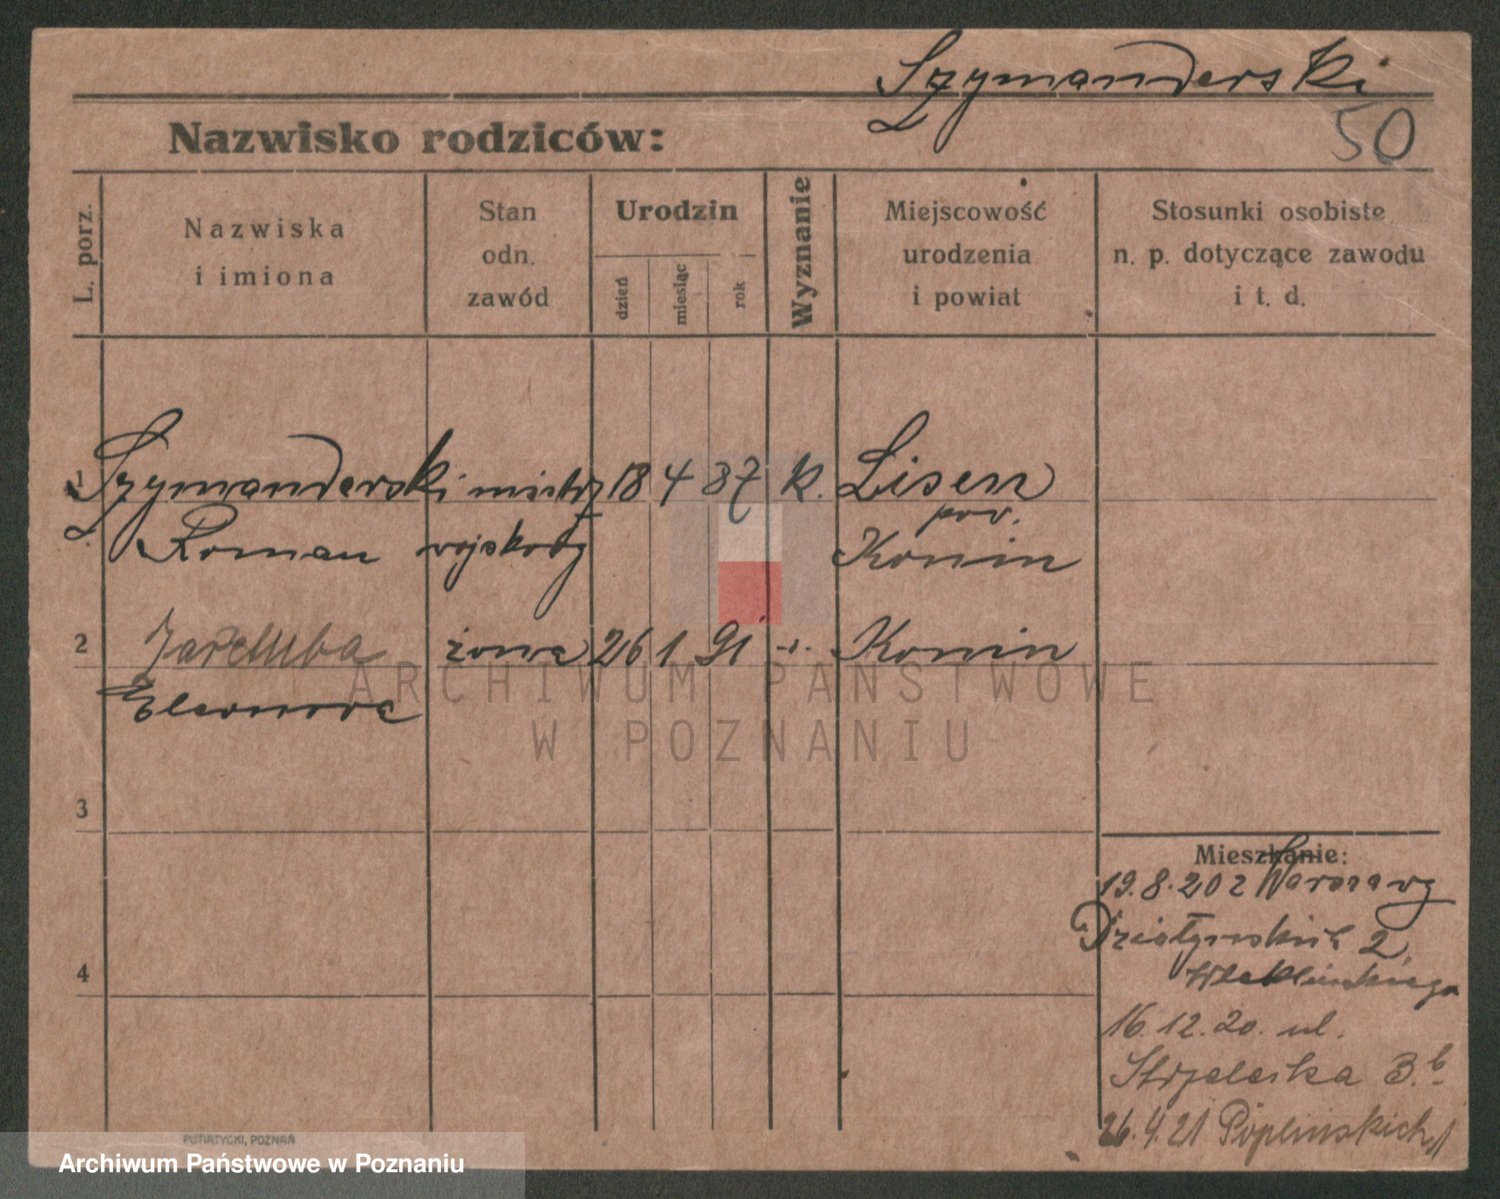 Szymanderski
50
Nazwisko rodziców:
L. porz.
Nazwiska
i imiona
Stan
odn.
zawód
Urodzin
dzień
miesiąc
rok
Wyznanie
Miejscowość
urodzenia
i powiat
Stosunki osobiste
n. p. dotyczące zawodu
i t. d.
1 Szymanderski mistrz 18 4 87 k. Lisen
pow.
Roman wojskowy Konin
2 Zaremba żona 26 1 91 Konin
Eleonora
ARCHIWUM PAŃSTWOWE
W POZNANIU
3
Mieszkanie:
19.8.20 z Warszawy
Działyńskich 2
4
16.12.20. ul.
Strzelecka 3.b.
26.4.21 Poplińskich 1
PUTIATYCKI, POZNAŃ
Archiwum Państwowe w Poznaniu